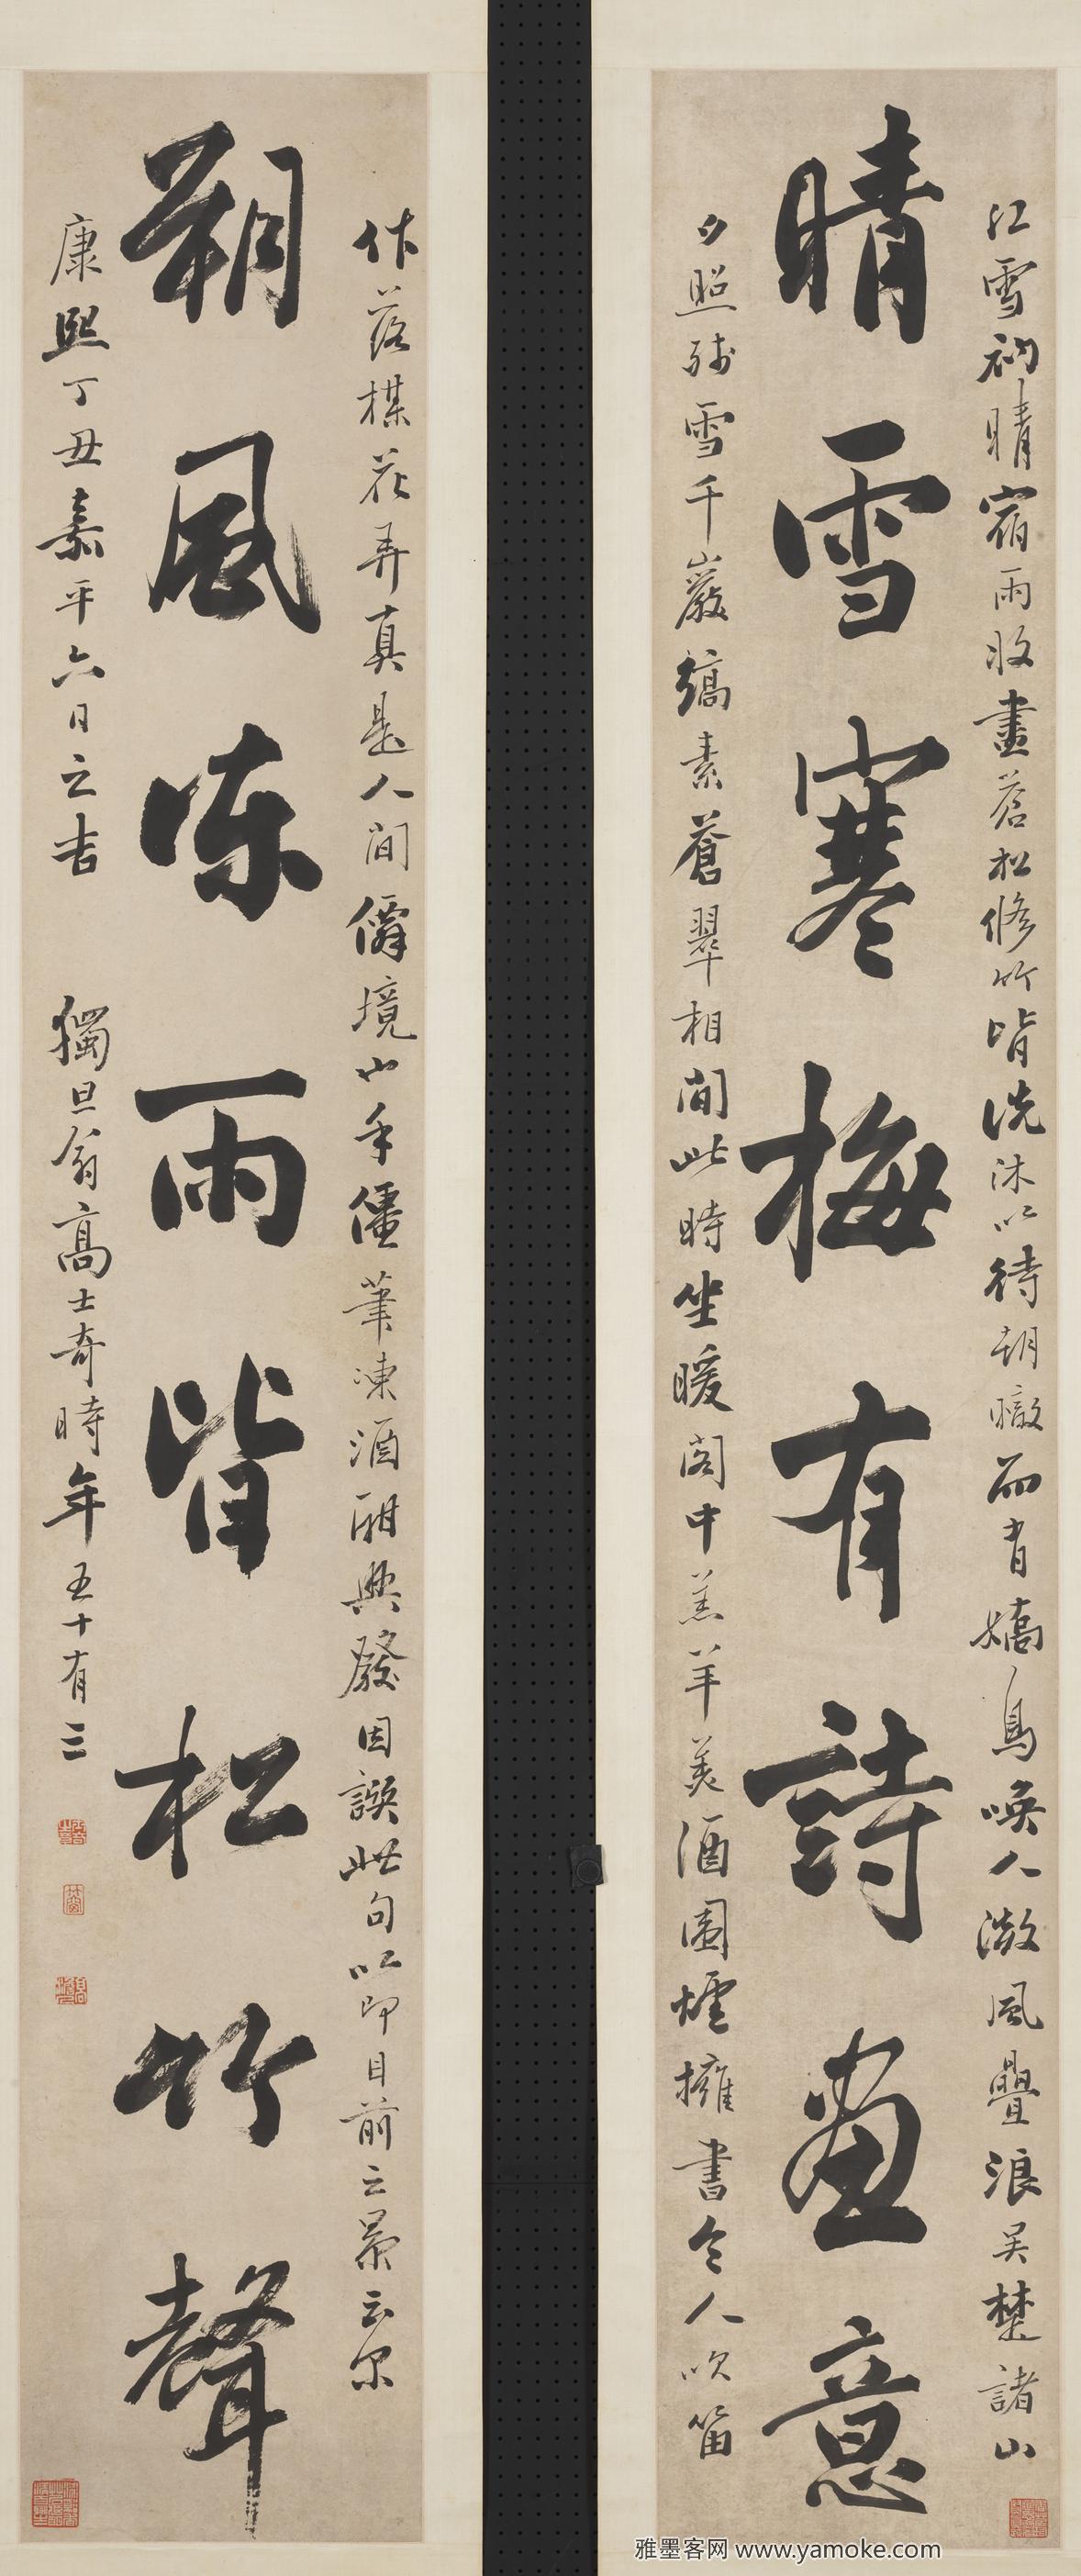 江雪初晴宿雨收畫蒼松修竹皆洗沐以待朝暾而有嬌鳥喚人微風疊浪吳楚諸山
晴雪寒梅有詩畫意
夕照殘雪千巖縞素蒼翠相間此時坐暖閣中羔羊美酒圍爐擁書令人吹笛
作落梅花弄真是人間僊境也手僵筆凍酒酣興發因譔此句以印目前之景云尔
朔風凍雨皆松竹聲
康熙丁丑嘉平六日之吉 獨旦翁高士奇時年五十有三
雅墨客网 www.yamoke.com